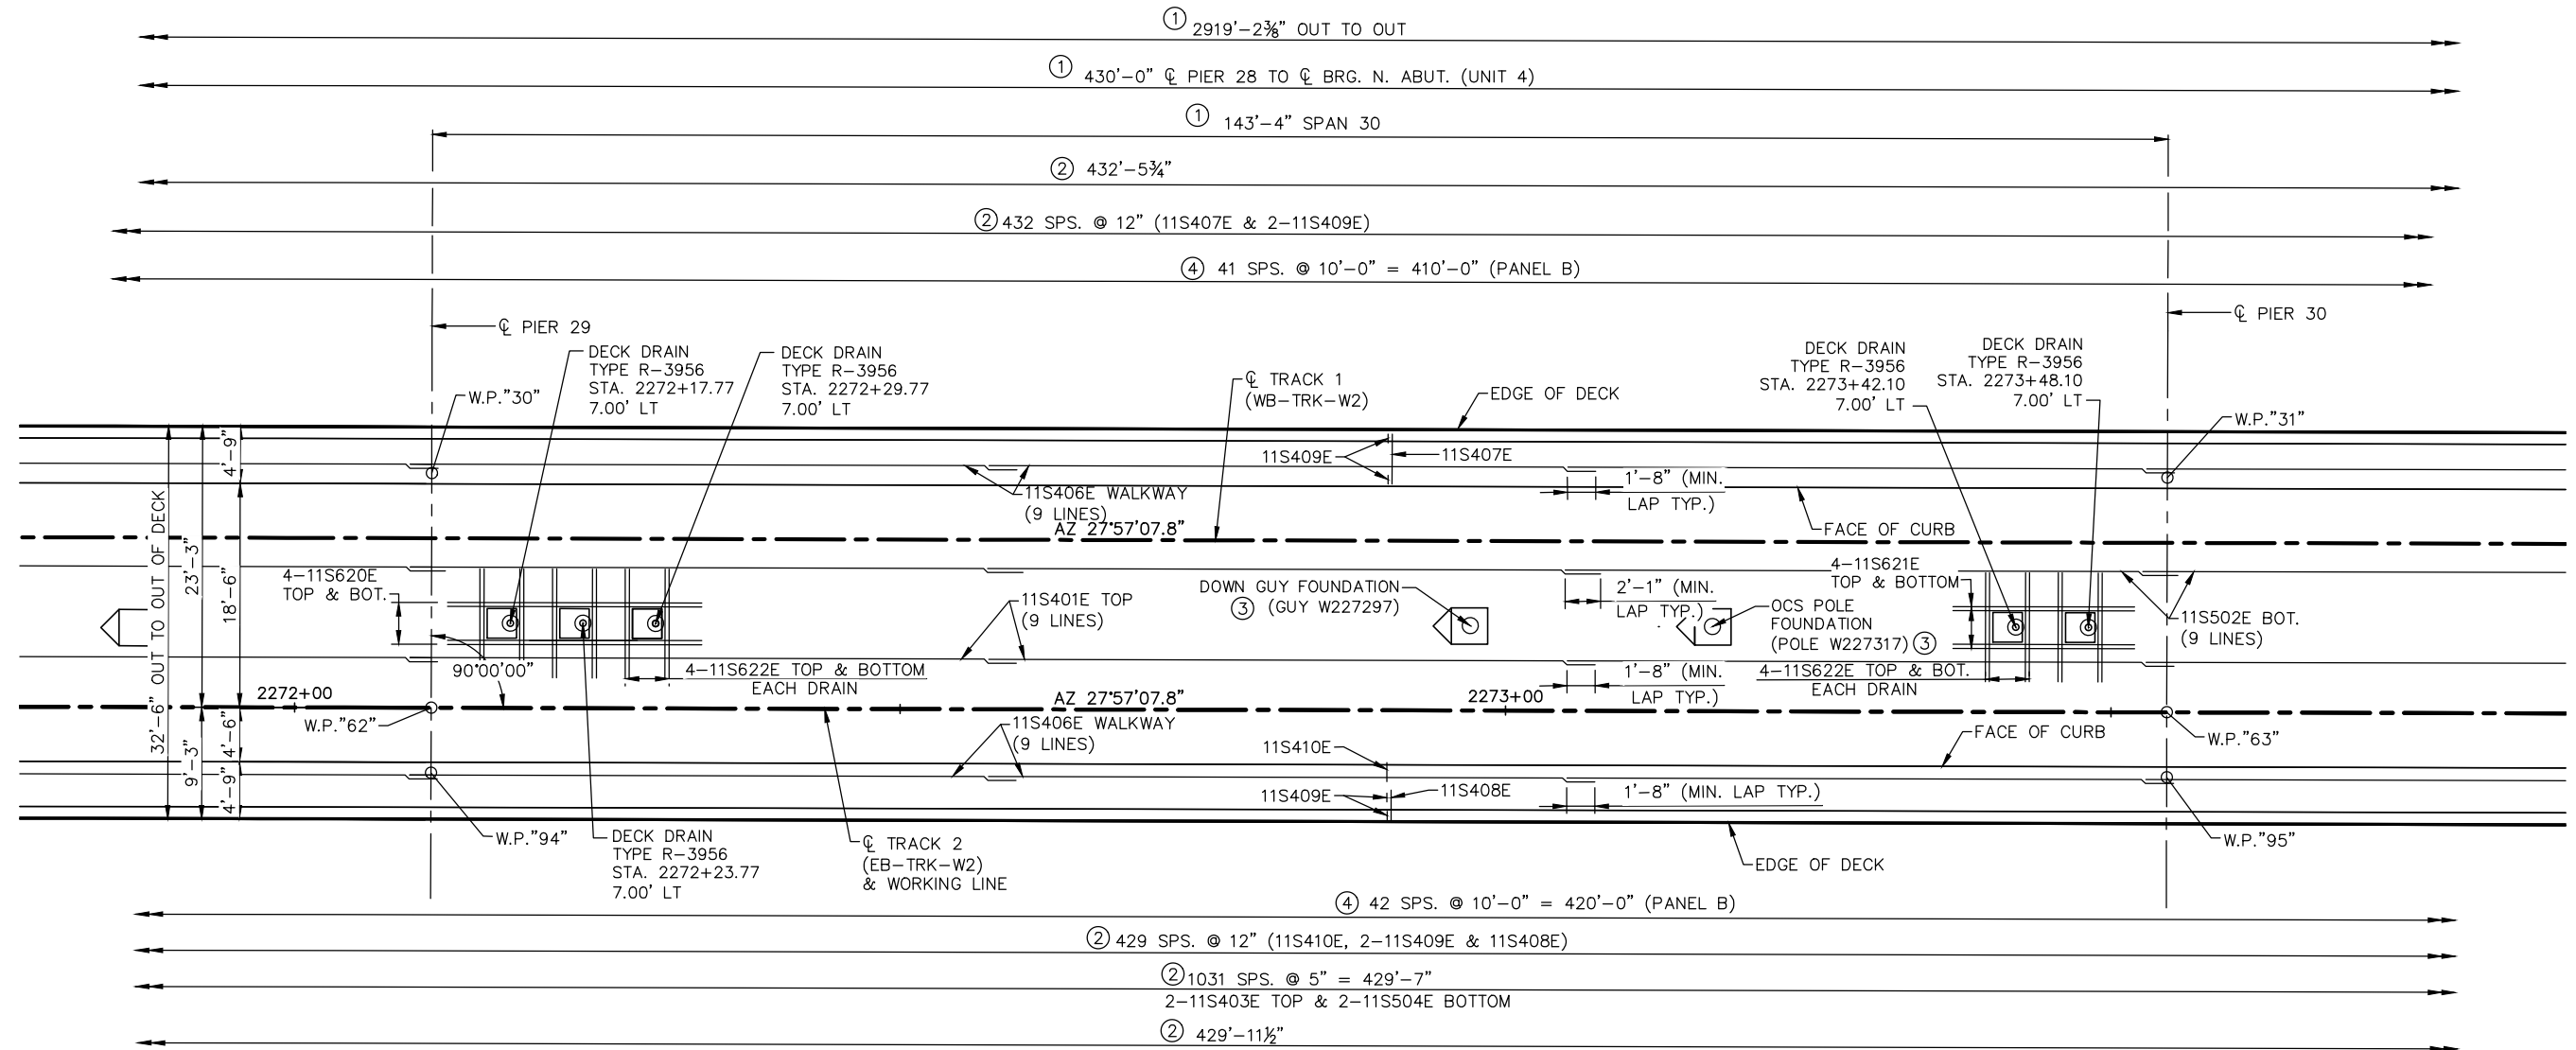 ① 2919'-2⅜" OUT TO OUT
① 430'-0" ℄ PIER 28 TO ℄ BRG. N. ABUT. (UNIT 4)
① 143'-4" SPAN 30
② 432'-5¾"
② 432 SPS. @ 12" (11S407E & 2-11S409E)
④ 41 SPS. @ 10'-0" = 410'-0" (PANEL B)
℄ PIER 29
℄ PIER 30
DECK DRAIN
TYPE R-3956
STA. 2272+17.77
7.00' LT
DECK DRAIN
TYPE R-3956
STA. 2272+29.77
7.00' LT
DECK DRAIN
TYPE R-3956
STA. 2273+42.10
7.00' LT
DECK DRAIN
TYPE R-3956
STA. 2273+48.10
7.00' LT
W.P."30"
℄ TRACK 1
(WB-TRK-W2)
EDGE OF DECK
W.P."31"
11S409E
11S407E
11S406E WALKWAY
(9 LINES)
1'-8" (MIN.
LAP TYP.)
FACE OF CURB
AZ 27°57'07.8"
32'-6" OUT TO OUT OF DECK
23'-3"
9'-3"
4'-9"
18'-6"
4'-6"
4'-9"
4-11S620E
TOP & BOT.
11S401E TOP
(9 LINES)
DOWN GUY FOUNDATION
③ (GUY W227297)
2'-1" (MIN.
LAP TYP.)
OCS POLE
FOUNDATION
(POLE W227317) ③
4-11S621E
TOP & BOTTOM
11S502E BOT.
(9 LINES)
90°00'00"
4-11S622E TOP & BOTTOM
EACH DRAIN
1'-8" (MIN.
LAP TYP.)
4-11S622E TOP & BOT.
EACH DRAIN
2272+00
AZ 27°57'07.8"
2273+00
W.P."62"
11S406E WALKWAY
(9 LINES)
11S410E
FACE OF CURB
W.P."63"
11S409E
11S408E
1'-8" (MIN. LAP TYP.)
W.P."94"
DECK DRAIN
TYPE R-3956
STA. 2272+23.77
7.00' LT
℄ TRACK 2
(EB-TRK-W2)
& WORKING LINE
EDGE OF DECK
W.P."95"
④ 42 SPS. @ 10'-0" = 420'-0" (PANEL B)
② 429 SPS. @ 12" (11S410E, 2-11S409E & 11S408E)
② 1031 SPS. @ 5" = 429'-7"
2-11S403E TOP & 2-11S504E BOTTOM
② 429'-11½"